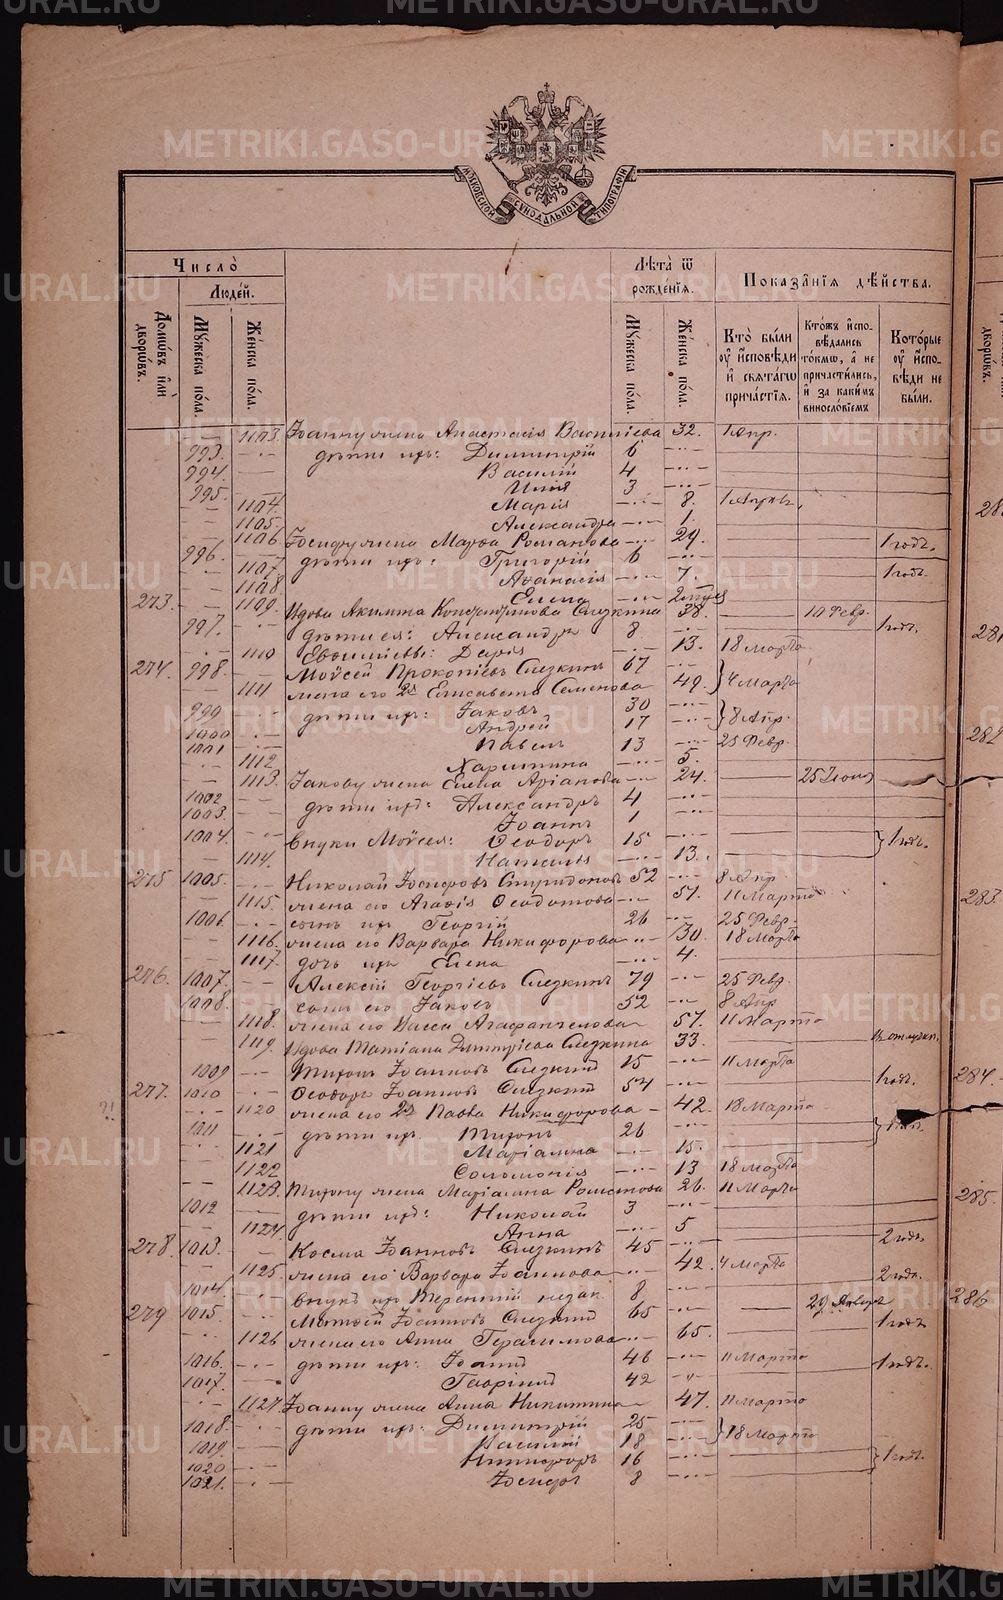 METRIKI.GASO-URAL.RU
МОСКОВСКОЙ СѴНОДАЛЬНОЙ ТИПОГРАФІИ
Число̀
Людей.
Домѡвъ и҆лѝ дворѡвъ.
Мꙋжеска пола.
Женска пола.
Лѣта̀ ѿ рожденїѧ.
Мꙋжеска пола.
Женска пола.
Показанїѧ дѣйства.
Кто̀ были ᲂу҆ и҆сповѣди и҆ свѧтагѡ причастїѧ.
Ктожъ и҆споvѣдались токмѡ, а҆ не причастились, и҆ за какимъ винословїемъ
Которые ᲂу҆ и҆сповѣди не были.
1103. Іоанну жена Анастасія Василіева 32. 1 Апр.
993. дѣти ихъ: Димитрій 6
994. Василій 4
995. Илія 3
1104. Марія 8. 1 Апрѣл.
1105. Александра 1.
1106 Іосифу жена Марѳа Романова 29. 1 годъ.
996. дѣти ихъ: Григорій 6
1107 Аѳанасія 7. 1 годъ.
1108 Елена
273. 1109. Вдова Акилина Константинова Слезкина 38. 10 Февр.
997. дѣти ея: Александръ 8 1 годъ
1110 Евфиміевы: Дарія 13. 18 Марта
274. 998. Моѵсей Прокопіевъ Слезкинъ 67
1111 жена его 2я Елисавета Семенова 49. 4 Марта
999 дѣти ихъ: Іаковъ 30
1000 Андрей 17 8 Апр.
1001 Павелъ 13 25 Февр.
1112 Харитина 5.
1113. Іакову жена Елена 24. 25
1002 дѣти ихъ: Александръ 4
1003. Іоаннъ 1
1004. внуки Моѵсея: Ѳеодоръ 15 1 годъ.
1114. Наталія 13.
275 1005. Николай Іосифовъ Спиридоновъ 52 8 Апр.
1115. жена его Агафія Ѳеодотова 51. 11 Марта
1006. сынъ ихъ Георгій 26 25 Февр.
1116. жена его Варвара Никифорова 30. 18 Марта
1117. дочь ихъ Елена 4.
276. 1007. Алексій Георгіевъ Слезкинъ 79 25 Февр.
1008. сынъ его Іаковъ 52 8 Апр
1118. жена его Васса Агафангелова 57. 11 Марта
1119. Вдова Татіана Димитріева Слезкина 33.
1009 Тихонъ Іоанновъ Слезкинъ 15 11 Марта
277. 1010 Ѳеодоръ Іоанновъ Слезкинъ 54 1 годъ.
1120 жена его 2я Павла Никифорова 42. 18 Марта
1011 дѣти ихъ. Тихонъ 26
1121 Маріамна 15.
1122 Соломонія 13 18 Марта
1123. Тихону жена Маріамна Романова 26. 11 Марта
1012 дѣти ихъ: Николай 3
1124. Анна 5
278. 1013. Косма Іоанновъ Слезкинъ 45 2 года
1125. жена его Варвара Іоаннова 42. 4 Марта
1014. внукъ ихъ Терентій незак. 8 2 года.
279 1015. Матѳей Іоанновъ Слезкинъ 65 29 Января
1126 жена его Анна Герасимова 65. 1 годъ
1016. дѣти ихъ: Іоаннъ 46 11 Марта 1 годъ.
1017. Гавріилъ 42
1127 Іоанну жена Анна Никитина 47. 11 Марта
1018. дѣти ихъ: Димитрій 25
1019 Василій 18 18 Марта
1020 Никифоръ 16 1 годъ.
1021. Іосифъ 8
282
283.
284.
285.
286